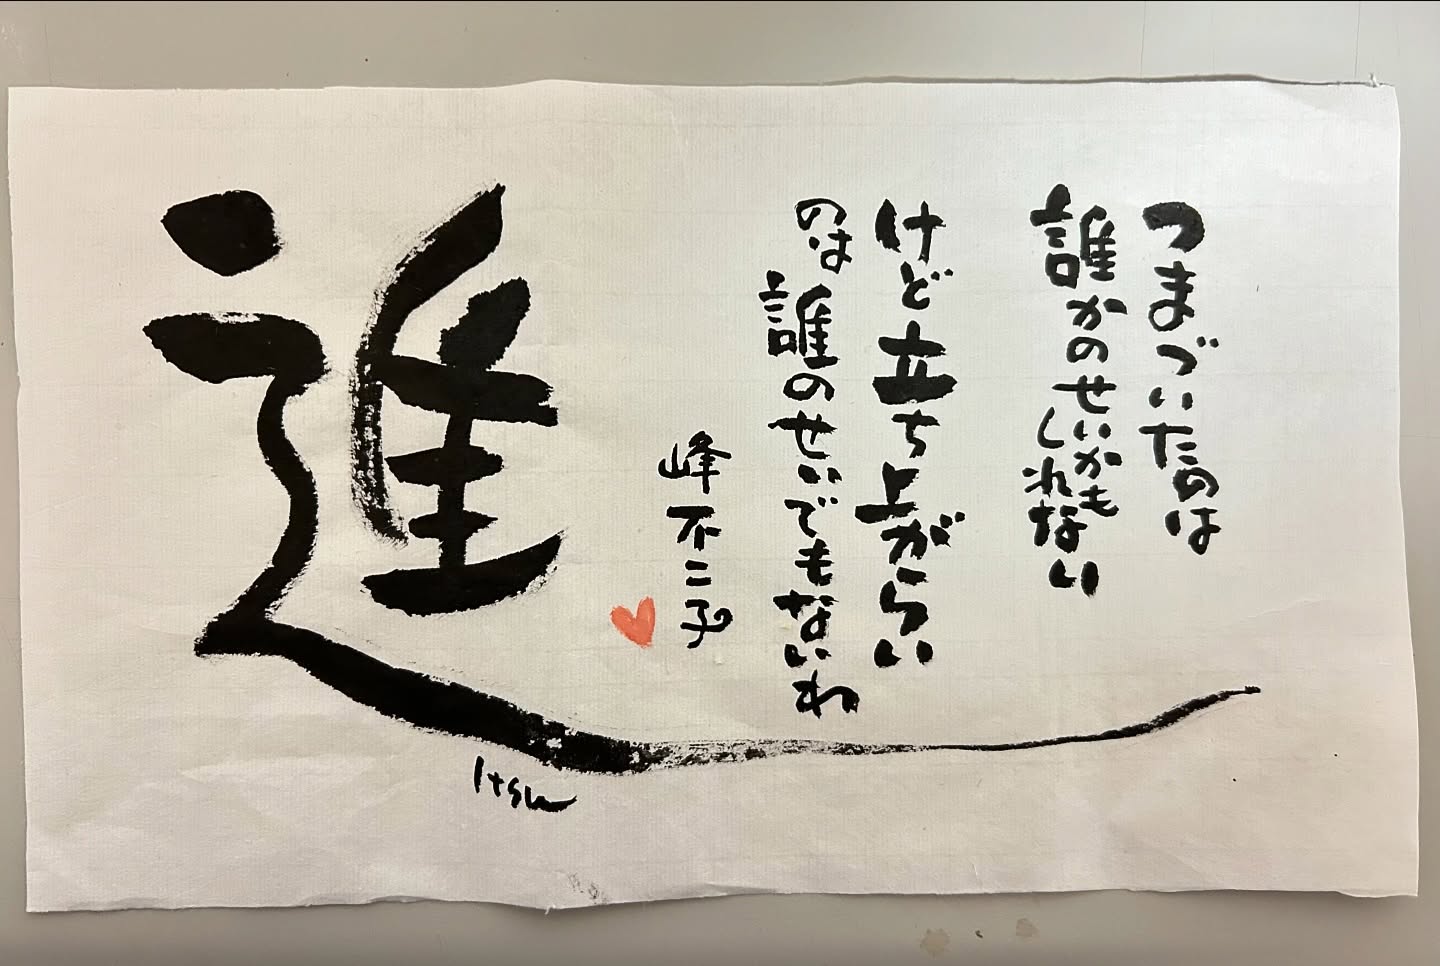 つまづいたのは
誰かのせいかも
しれない
けど立ち上がらい
のは誰のせいでもないわ
峰不二子
進
Itsu